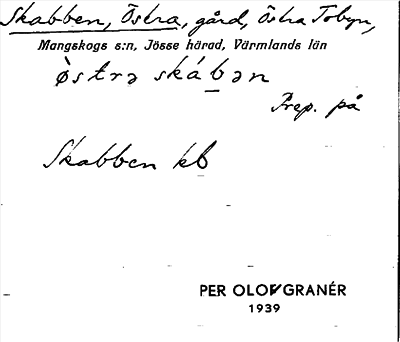 Skabben, Östra, gård, Östra Tobyn,
Mangskogs s:n, Jösse härad, Värmlands län
òstrə skábən
Prep. på
Skabben kb
PER OLOF GRANÉR
1939